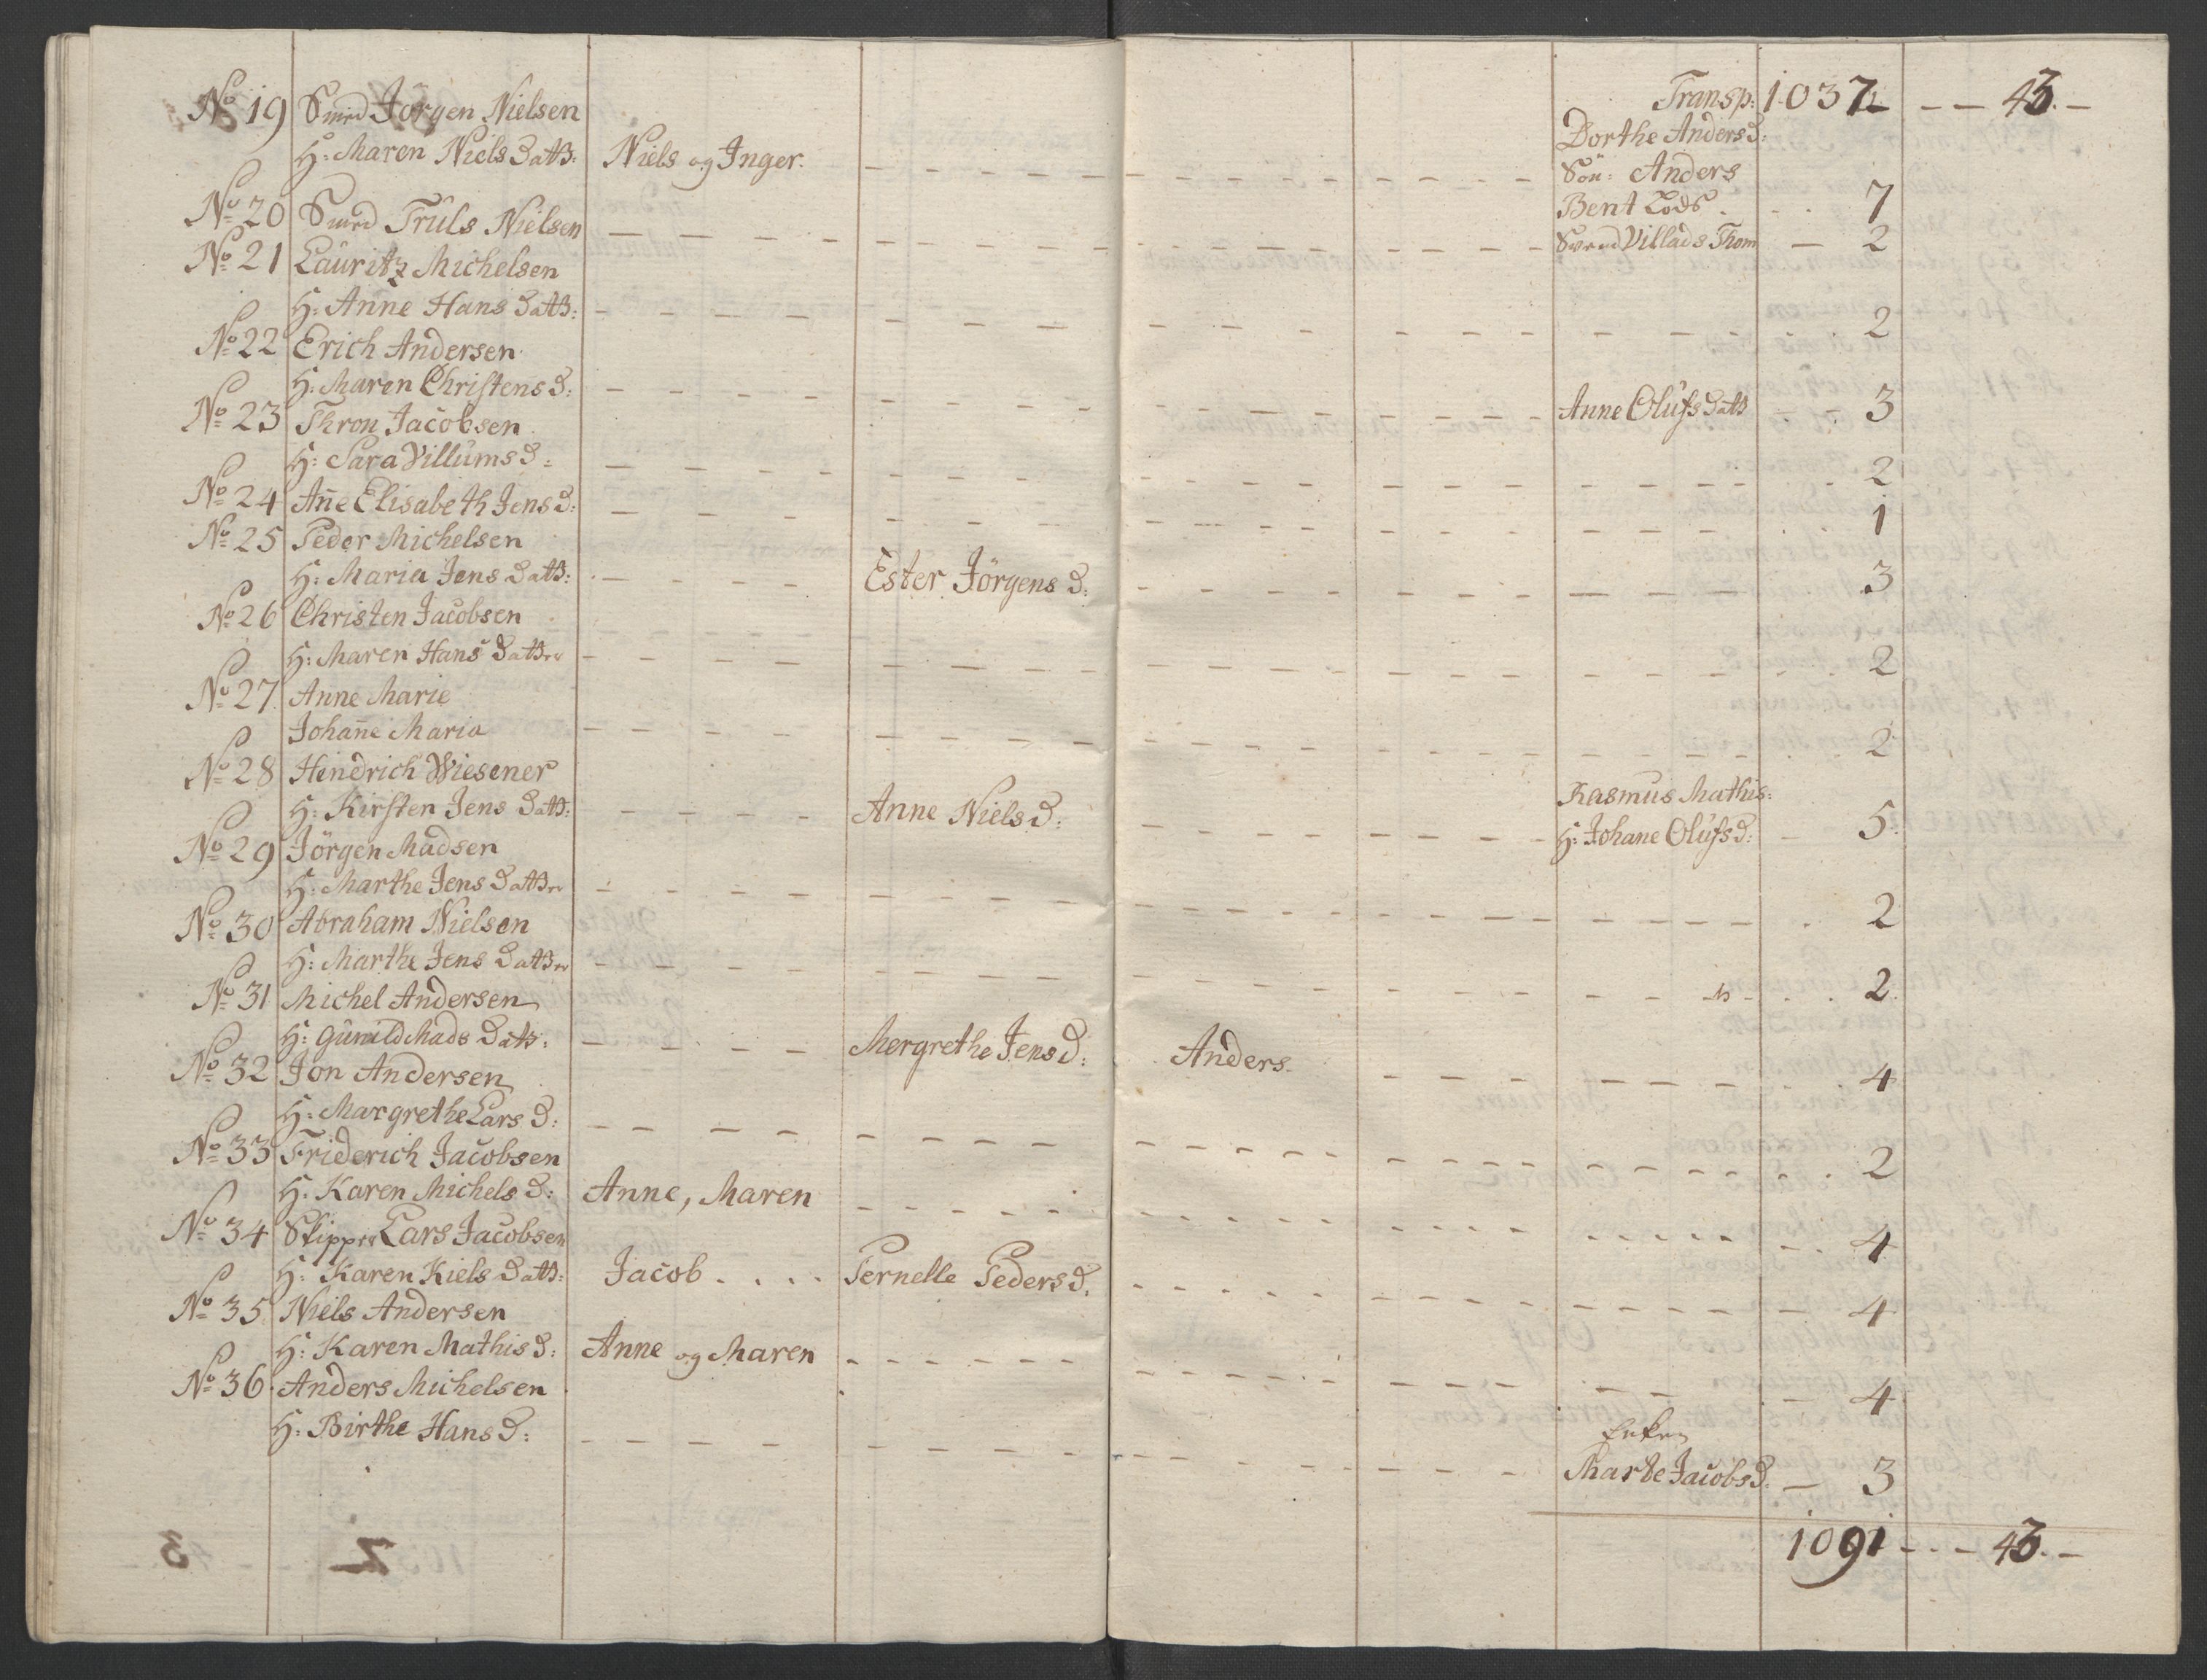 Transp: 1037 - - 43. -
No 19 Smed Jörgen Nielsen Dorthe Anders D:
H: Maren Niels Datt: Niels og Inger. Sön: Anders
Bent Lods . 7
No 20 Smed Truls Nielsen Svend Villads Thom - 2
No 21 Lauritz Michelsen
H: Anne Hans Datt: 2
No 22 Erich Andersen
H: Maren Christens D: Anne Olufs Datt 3
No 23 Thron Jacobsen
H: Sara Villums D: 2
No 24 Añe Elisabeth Jens D: 1
No 25 Peder Michelsen
H: Maria Jens Datt: Ester Jörgens D: 3
No 26 Christen Jacobsen
H: Maren Hans Datter 2
No 27 Anne Marie
Johañe Maria 2
No 28 Hendrich Wiesener Rasmus Mathis:
H: Kirsten Jens Datt: Anne Niels D: H: Johane Olufs D: 5
No 29 Jörgen Madsen
H: Marthe Jens Datter 2
No 30 Abraham Nielsen
H: Marthe Jens Datter 2
No 31 Michel Andersen
H: Gunild Mads Datt: Mergrethe Jens D: Anders. 4
No 32 Jon Andersen
H: Margrethe Lars D: 2
No 33 Friderich Jacobsen
H: Karen Michels D: Anne, Maren 4
No 34 Skipper Lars Jacobsen
H: Karen Kiels Datt: Jacob . . . . Pernelle Peders D. 4
No 35 Niels Andersen
H: Karen Mathis D: Anne og Maren 4
No 36 Anders Michelsen Enken
H: Birthe Hans D: Marte Jacobs D: - 3
1091 - - - 43. -